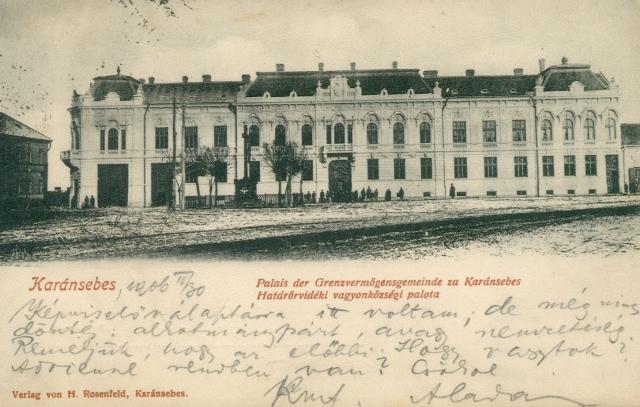 Karánsebes, 1906 IV/30
Palais der Grenzvermögensgemeinde zu Karánsebes
Határőrvidéki vagyonközségi palota
Képviselőválaptásra itt voltam, de még nincs
döntés: alkotmánypárt, avagy nemzetiség.
Reméljük, hogy az előbbi. Hogy vagytok?
Adrienne rendben van? Csókol
Verlag von H. Rosenfeld, Karánsebes.